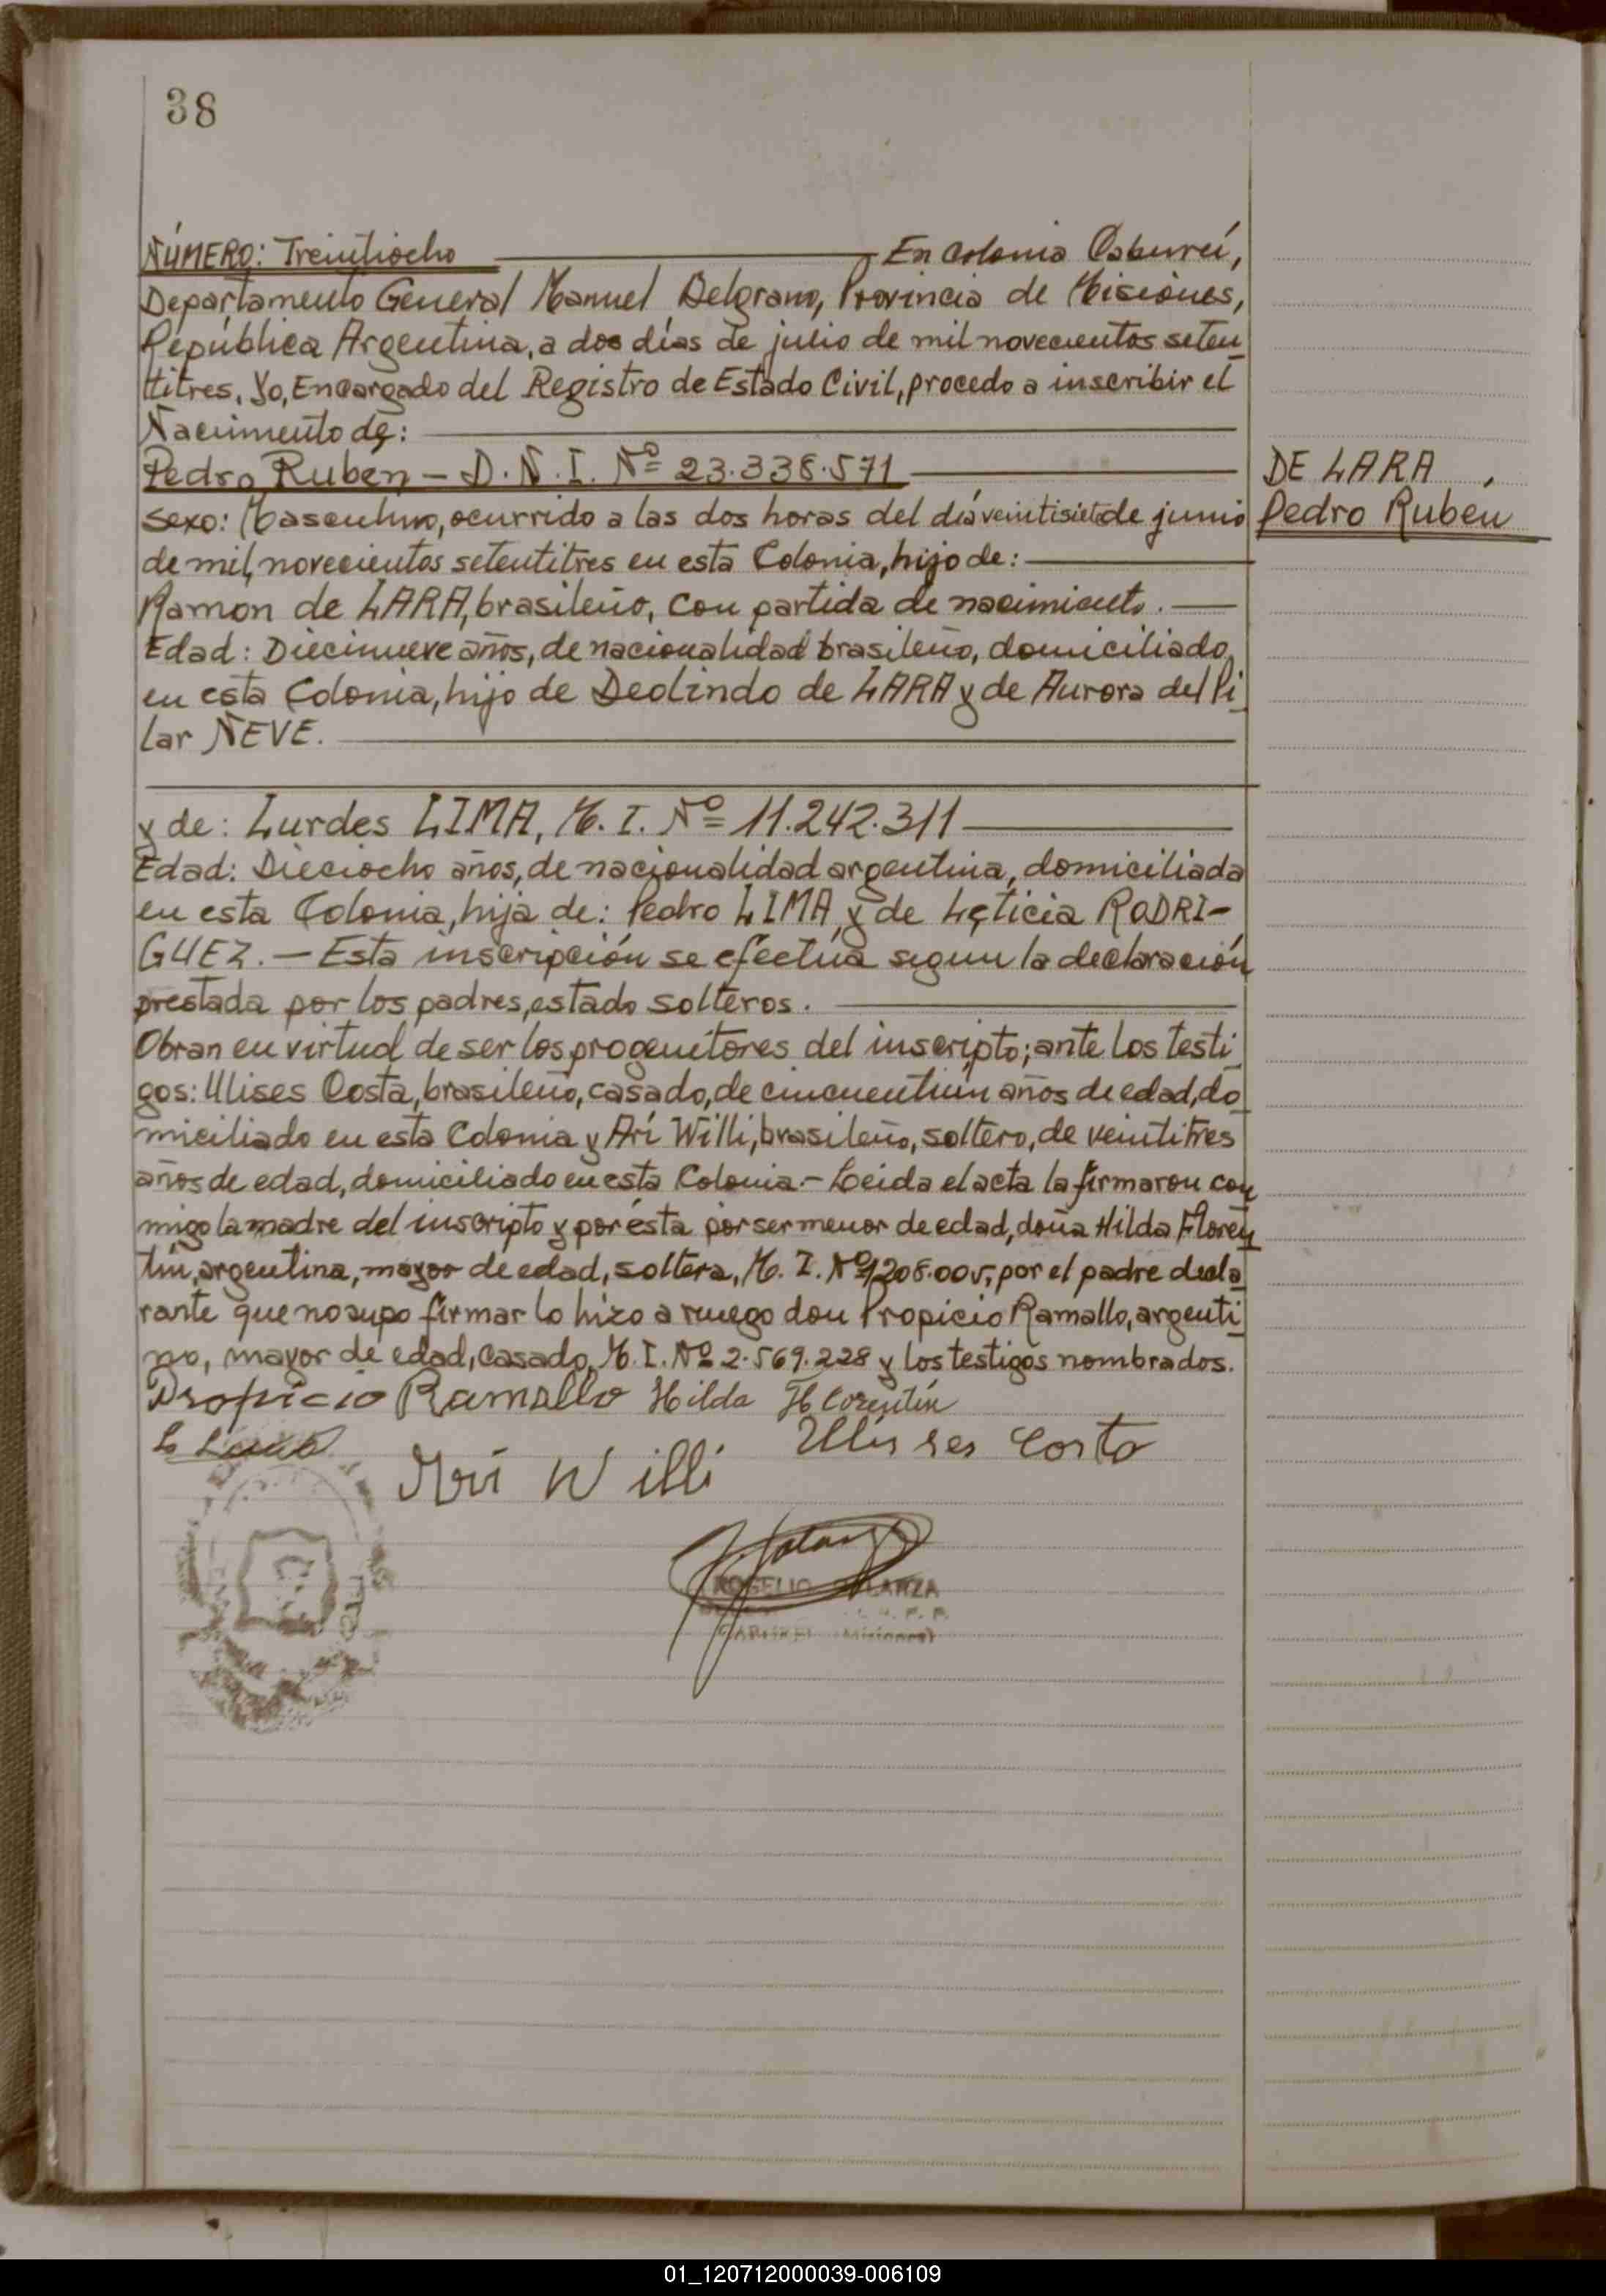 38
NÚMERO: Treintiocho En Colonia Cabureí,
Departamento General Manuel Belgrano, Provincia de Misiones,
República Argentina, a dos días de julio de mil novecientos seten
titres. Yo, Encargado del Registro de Estado Civil, procedo a inscribir el
Nacimiento de:
Pedro Rubén - D.N.I. Nº 23.338.571
DE LARA
Pedro Rubén
Sexo: Masculino, ocurrido a las dos horas del día veintisiete de junio
de mil novecientos setentitres en esta Colonia, hijo de:
Ramon de LARA, brasileño, con partida de nacimiento.
Edad: Diecinueve años, de nacionalidad brasileño, domiciliado
en esta Colonia, hijo de Deolindo de LARA y de Aurora del Pi
lar NEVE.
y de: Lurdes LIMA, M. I. Nº 11.242.311
Edad: Dieciocho años, de nacionalidad argentina, domiciliada
en esta Colonia, hija de: Pedro LIMA y de Leticia RODRI-
GUEZ. - Esta inscripción se efectúa segun la declaración
prestada por los padres, estado solteros.
Obran en virtud de ser los progenitores del inscripto; ante los testi
gos: Ulises Costa, brasileño, casado, de cincuentiún años de edad, do
miciliado en esta Colonia y Arí Willi, brasileño, soltero, de veintitres
años de edad, domiciliado en esta Colonia.- Leida el acta la firmaron con
migo la madre del inscripto y por ésta por ser menor de edad, doña Hilda Floren
tín, argentina, mayor de edad, soltera, M. I. Nº 1.208.005; por el padre decla
rante que no supo firmar lo hizo a ruego don Propicio Ramallo, argenti
no, mayor de edad, casado, M. I. Nº 2.569.228 y los testigos nombrados.
Propicio Ramallo Hilda Florentín
Ulisses Costa
Ari Willi
ROGELIO
(Misiones)
01_120712000039-006109